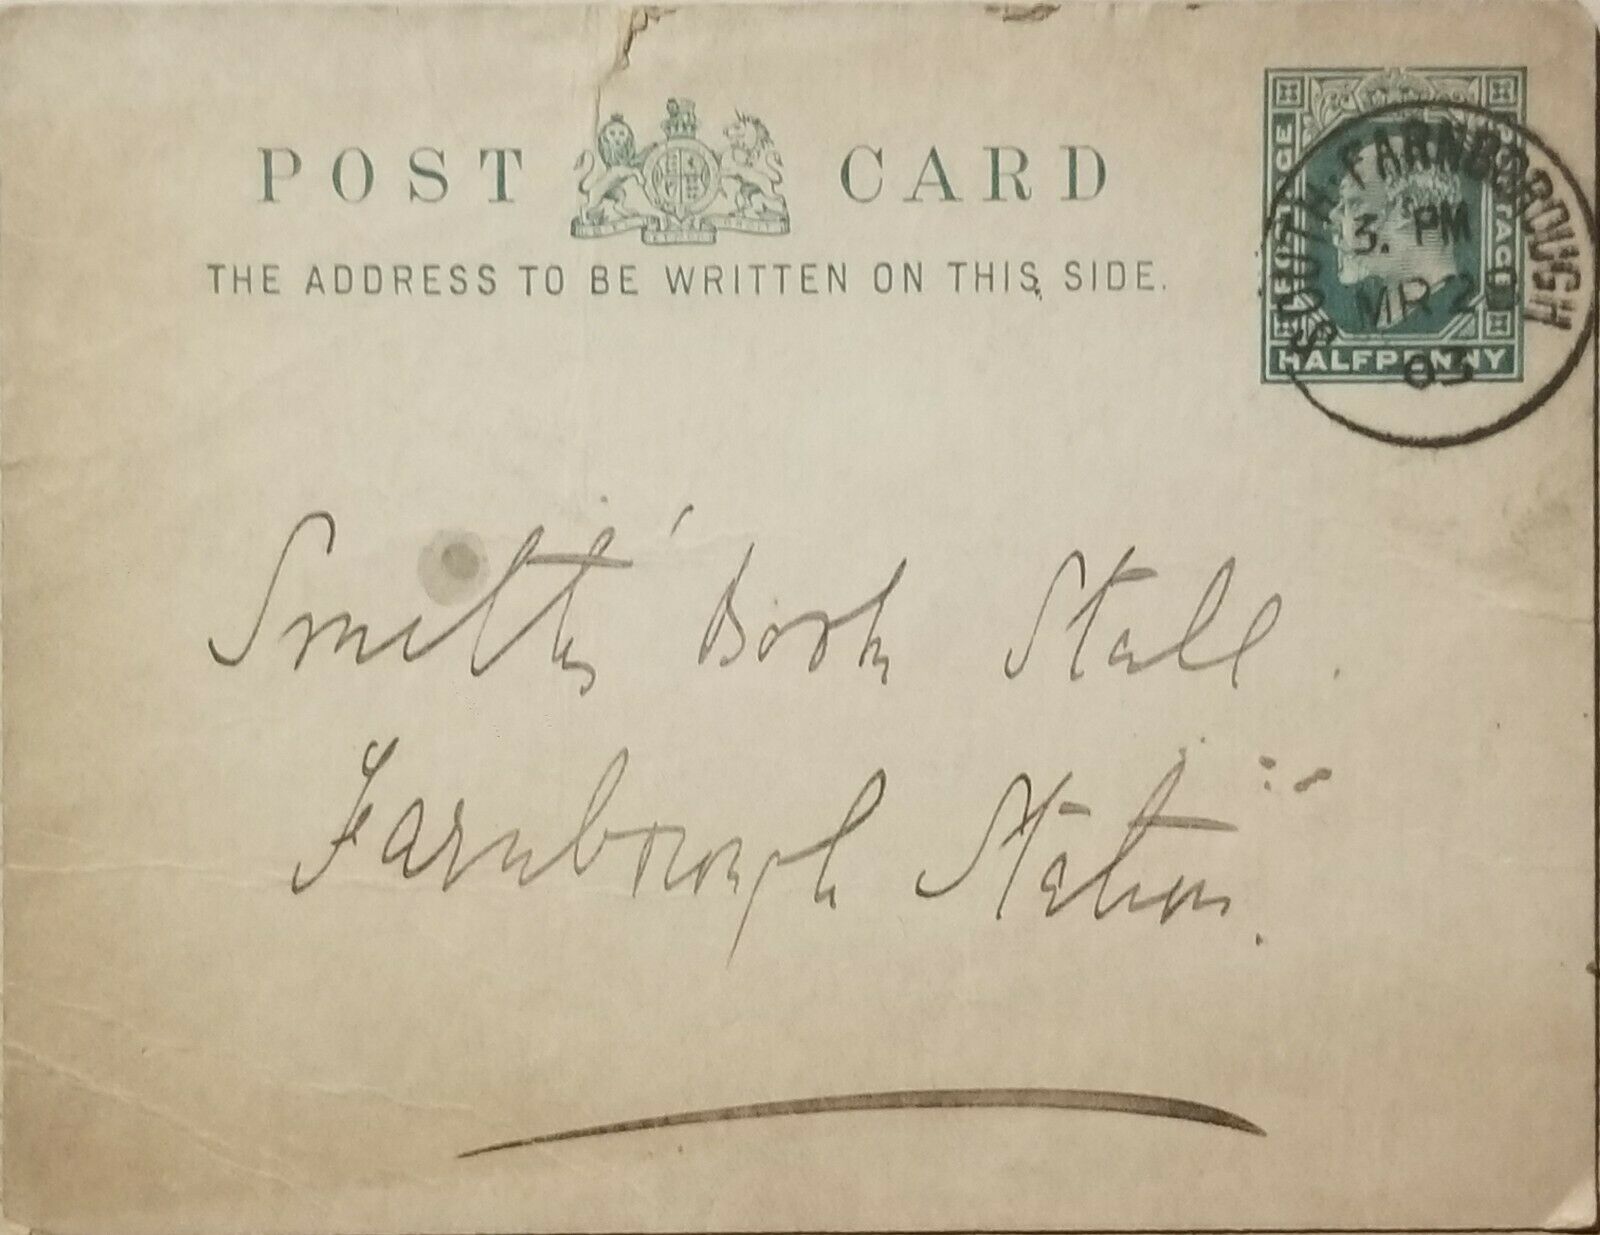 POST CARD
THE ADDRESS TO BE WRITTEN ON THIS SIDE.
POSTAGE
HALFPENNY
SOUTH. FARNBOROUGH
3. PM
MR 2
03
Smith's Book Stall.
Farnborough Station.